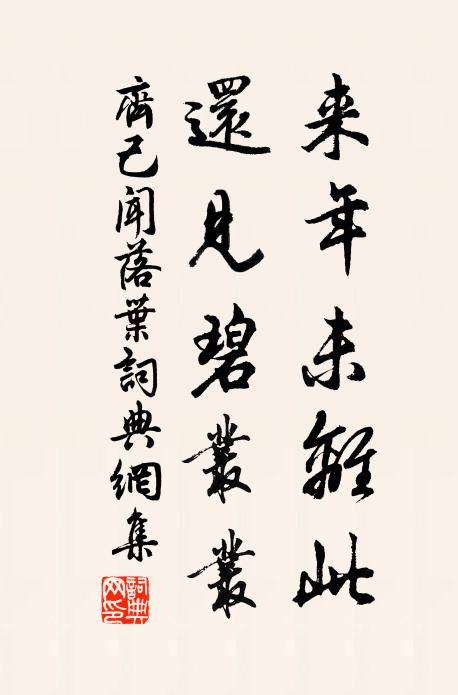 来年未離此
還見碧叢叢
齊己聞落葉詞典網集
詞典網印